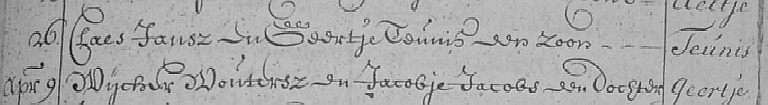 Aeltje
26 Claes Jansz en Geertje Teunis een zoon - - - Teunis
Apr 9 Wijcher Woutersz en Jacobje Jacobs een Dochter Geertje